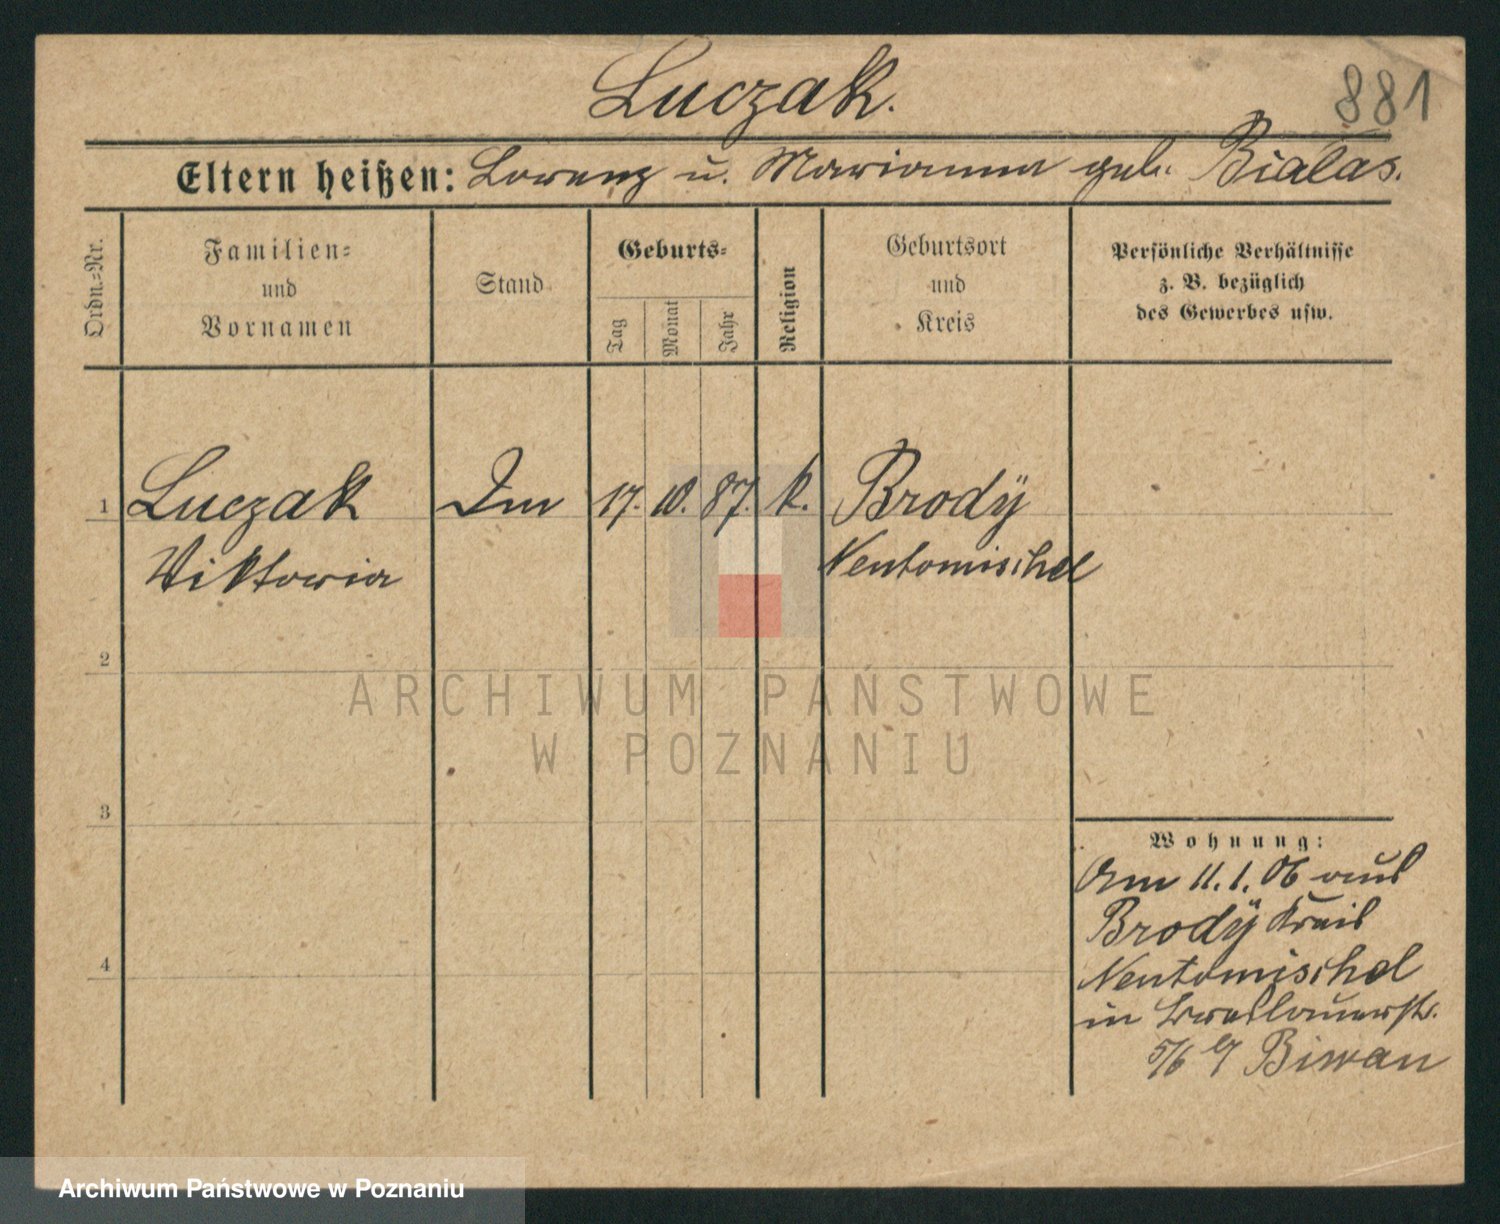 Luczak.
881
Eltern heißen: Lorenz u. Marianna geb. Bialas.
Ordn.=Nr.
Familien=
und
Vornamen
Stand
Geburts=
Tag
Monat
Jahr
Religion
Geburtsort
und
Kreis
Persönliche Verhältnisse
z. B. bezüglich
des Gewerbes usw.
1 Luczak 17. 10. 87. k. Brodÿ
Viktoria Neutomischel
2
ARCHIWUM PAŃSTWOWE
W POZNANIU
3
Wohnung:
Am 11.1.06 aus
Brodÿ Kreis
Neutomischel
in Breslauerstr.
5/6 Biwan
4
Archiwum Państwowe w Poznaniu